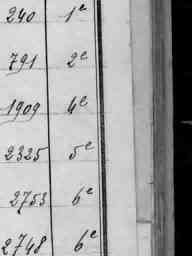 240 1e
791 2e
1909 4e
2325 5e
2753 6e
2748 6e